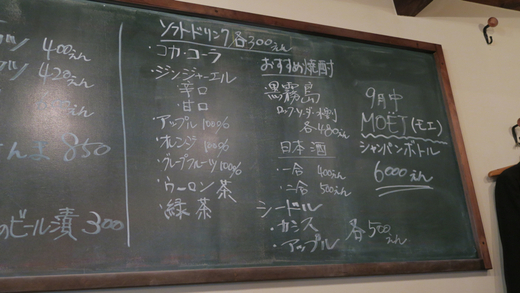 400えん
420えん
850
のビール漬 300
ソフトドリンク 各300えん
・コカ・コーラ
・ジンジャーエール
辛口
甘口
・アップル 100%
・オレンジ 100%
・グレープフルーツ 100%
・ウーロン茶
・緑茶
おすすめ焼酎
黒霧島
ロック・ソーダ・水割
各480えん
日本酒
・一合 400えん
・二合 500えん
シードル
・カシス
・アップル 各500えん
9月中
MOET (モエ)
シャンパンボトル
6000えん